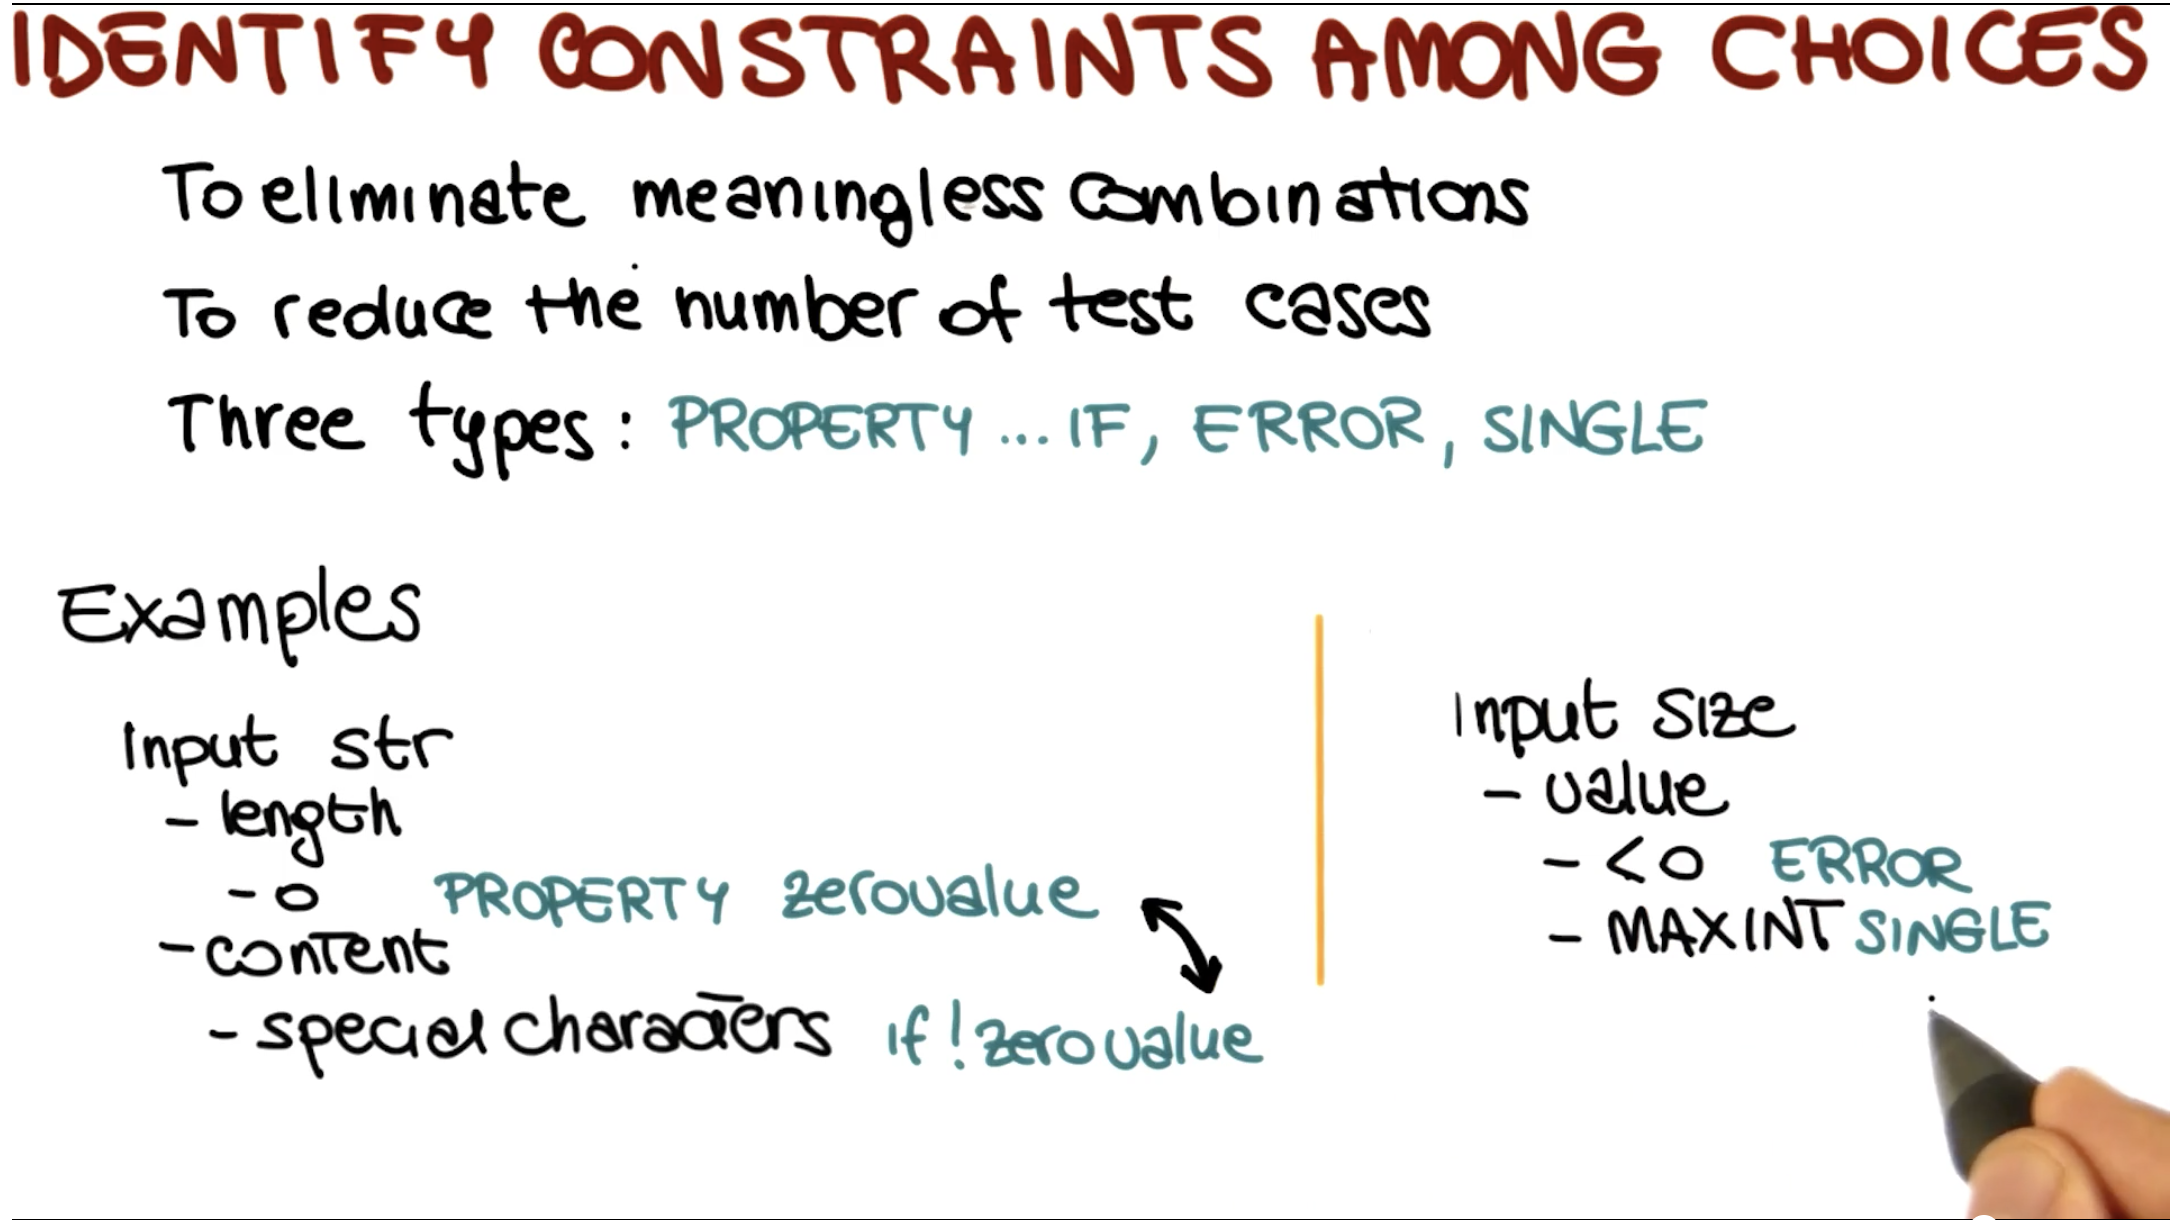 IDENTIFY CONSTRAINTS AMONG CHOICES
To eliminate meaningless combinations
To reduce the number of test cases
Three types: PROPERTY ... IF, ERROR, SINGLE
Examples
Input str
- length
- 0 PROPERTY zerovalue
- content
- special characters if !zerovalue
Input size
- value
- <0 ERROR
- MAXINT SINGLE